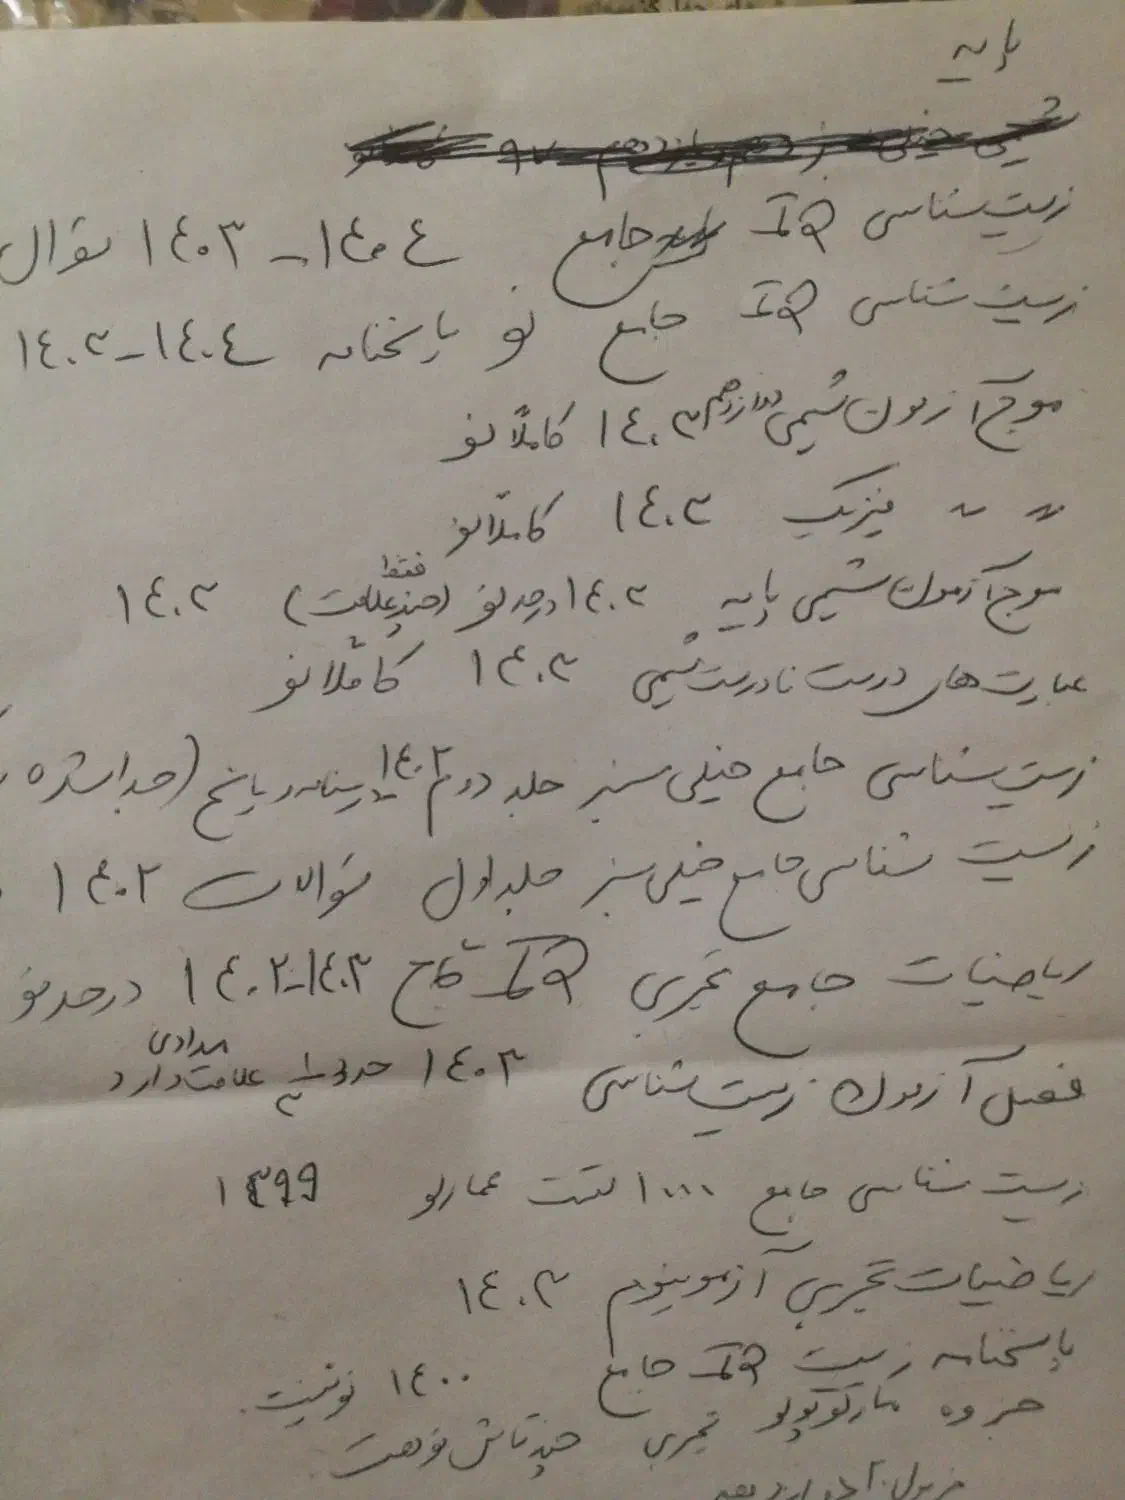 پایه
زیست شناسی IQ جامع ۱۴۰۴-۱۴۰۳ سؤال
زیست شناسی IQ جامع نو پاسخنامه ۱۴۰۴-۱۴۰۳
موج آزمون شیمی دوازدهم ۱۴۰۳ کاملاً نو
〃 〃 فیزیک ۱۴۰۳ کاملاً نو
موج آزمون شیمی پایه ۱۴۰۳ درحد نو (فقط چند علامت) ۱۴۰۳
عبارت های درست نادرست شیمی ۱۴۰۳ کاملاً نو
زیست شناسی جامع خیلی سبز جلد دوم ۱۴۰۲ و پاسخ (جدا شده
زیست شناسی جامع خیلی سبز جلد اول سؤالات ۱۴۰۲
ریاضیات جامع تجربی IQ گاج ۱۴۰۳-۱۴۰۲ درحد نو
فصل آزمون زیست شناسی ۱۴۰۳ حدود ۱/۳ علامت مدادی دارد
زیست شناسی جامع ۱۰۰۰ تست عمارلو ۱۳۹۹
ریاضیات تجربی آزمونیوم ۱۴۰۳
پاسخنامه زیست IQ جامع ۱۴۰۰ نو نیست.
جزوه مارکوپولو تجربی چندتاش نو هست